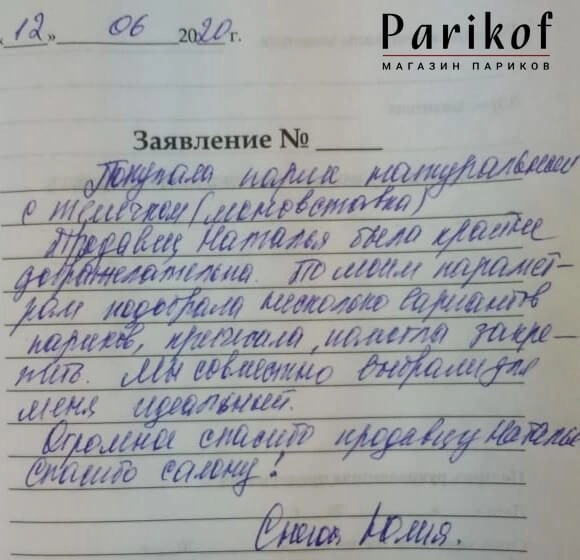 «12» 06 2020 г.
Parikof
МАГАЗИН ПАРИКОВ
Заявление №
Покупала парик натуральный
с темечком (моновставка)
Продавец Наталья была крайне
доброжелательна. По моим парамет-
рам подобрала несколько вариантов
париков, причесала, помогла закре-
пить. Мы совместно выбрали для
меня идеальный.
Огромное спасибо продавцу Наталье
Спасибо салону!
Юлия.